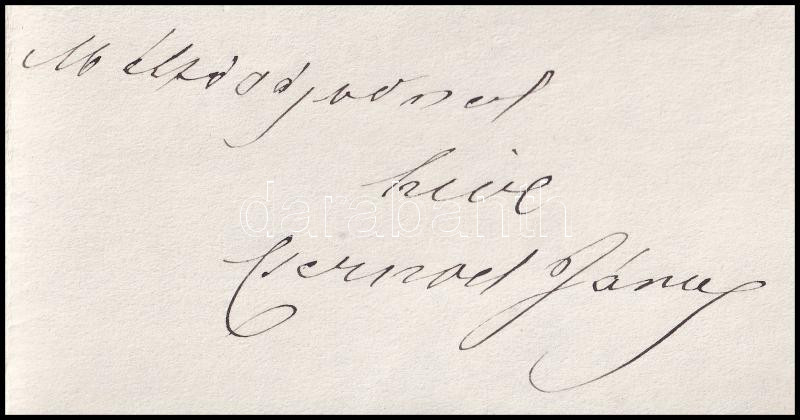 Méltóságodnak
hive
Csernoch János
darabanth